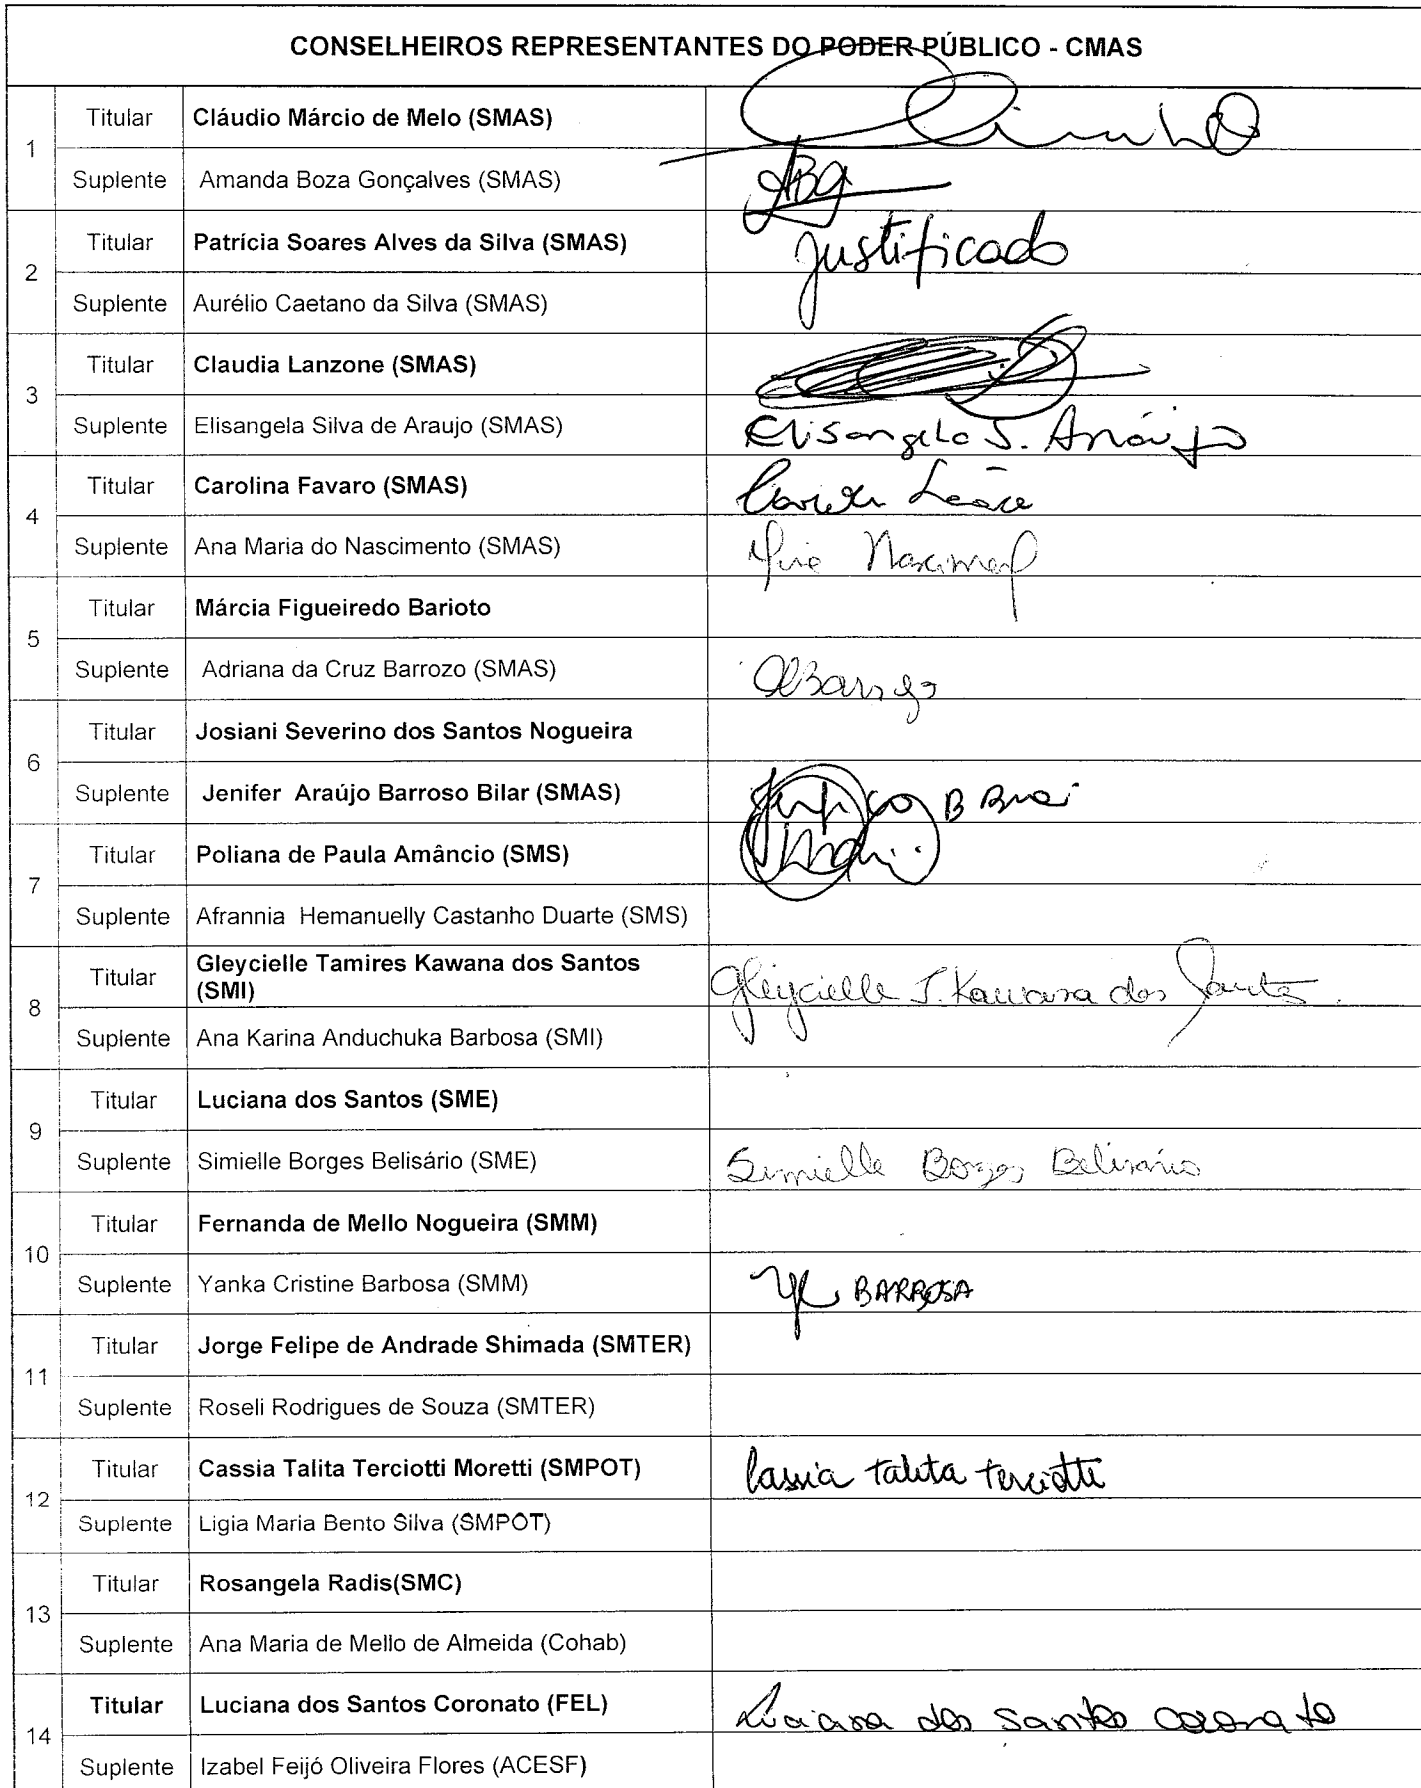 CONSELHEIROS REPRESENTANTES DO PODER PÚBLICO - CMAS
1
Titular Cláudio Márcio de Melo (SMAS)
Suplente Amanda Boza Gonçalves (SMAS) ABG
2
Titular Patrícia Soares Alves da Silva (SMAS) Justificado
Suplente Aurélio Caetano da Silva (SMAS)
3
Titular Claudia Lanzone (SMAS)
Suplente Elisangela Silva de Araujo (SMAS) Elisangela S. Araújo
4
Titular Carolina Favaro (SMAS)
Suplente Ana Maria do Nascimento (SMAS)
5
Titular Márcia Figueiredo Barioto
Suplente Adriana da Cruz Barrozo (SMAS)
6
Titular Josiani Severino dos Santos Nogueira
Suplente Jenifer Araújo Barroso Bilar (SMAS)
7
Titular Poliana de Paula Amâncio (SMS)
Suplente Afrannia Hemanuelly Castanho Duarte (SMS)
8
Titular Gleycielle Tamires Kawana dos Santos Gleycielle T. Kawana dos Santos.
(SMI)
Suplente Ana Karina Anduchuka Barbosa (SMI)
9
Titular Luciana dos Santos (SME)
Suplente Simielle Borges Belisário (SME) Simielle Borges Belisário
10
Titular Fernanda de Mello Nogueira (SMM)
Suplente Yanka Cristine Barbosa (SMM) BARBOSA
11
Titular Jorge Felipe de Andrade Shimada (SMTER)
Suplente Roseli Rodrigues de Souza (SMTER)
12
Titular Cassia Talita Terciotti Moretti (SMPOT) Cassia Talita Terciotti
Suplente Ligia Maria Bento Silva (SMPOT)
13
Titular Rosangela Radis(SMC)
Suplente Ana Maria de Mello de Almeida (Cohab)
14
Titular Luciana dos Santos Coronato (FEL) Luciana dos Santos Coronato
Suplente Izabel Feijó Oliveira Flores (ACESF)